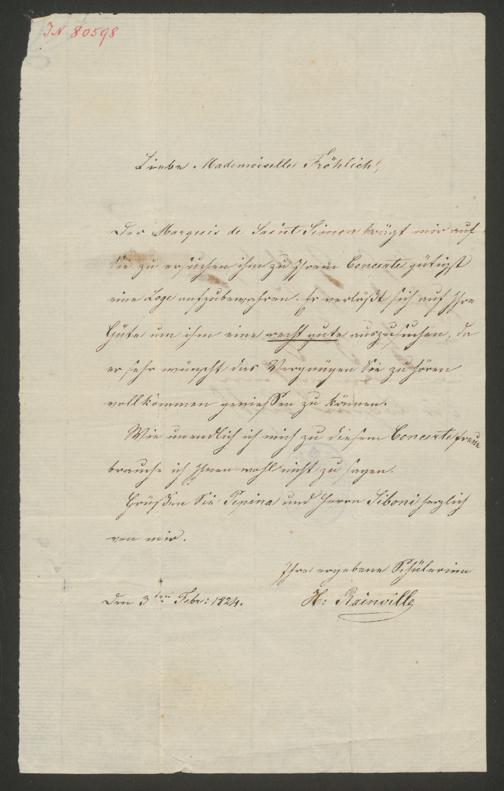 IN 80598
Liebe Mademoiselle Fröhlich!
Der Marquis de Saint Simon trägt mir auf
Sie zu ersuchen ihm zu Ihrem Concerte gütigst
eine Loge aufzubewahren. Er verläßt sich auf Ihre
Güte um ihm eine recht gute auszusuchen, da
er sehr wünscht das Vergnügen Sie zu hören
vollkommen geniessen zu können.
Wie unendlich ich mich zu diesem Concerte freue
brauche ich Ihnen wohl nicht zu sagen.
Grüßen Sie Pepina und Herrn Siboni herzlich
von mir.
Ihre ergebene Schülerinn
Den 3ten Febr: 1824.
H: Rainville